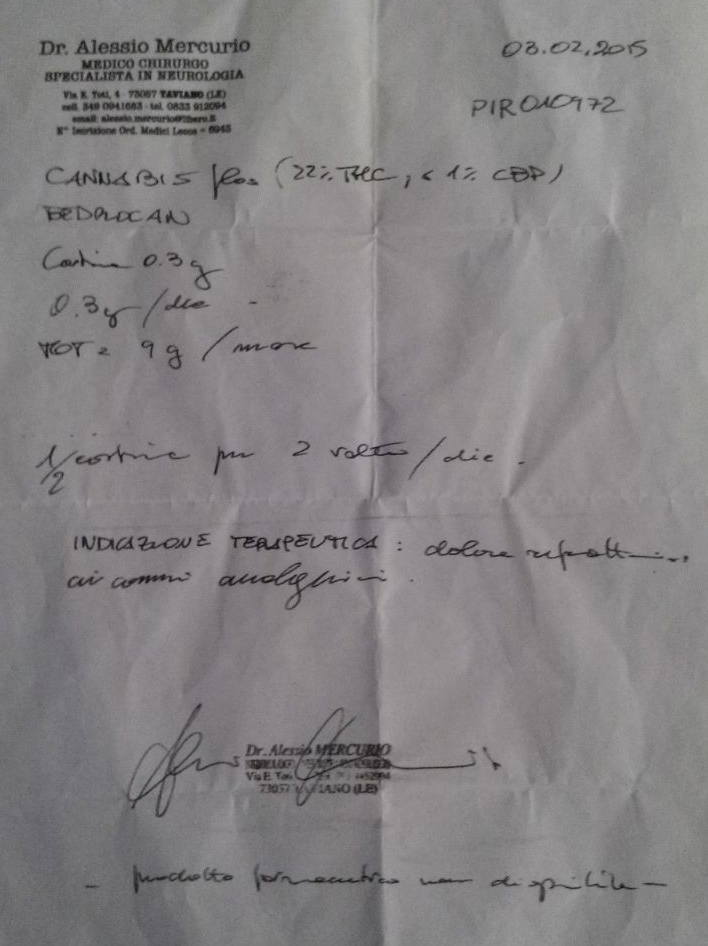 Dr. Alessio Mercurio
MEDICO CHIRURGO
SPECIALISTA IN NEUROLOGIA
Via E. Toti, 4 - 73057 TAVIANO (LE)
cell. 349 0941683 - tel. 0833 912094
email: alessio.mercurio@libero.it
N° Iscrizione Ord. Medici Lecce - 6945
03.02.2015
PIRO10972
CANNABIS flos (22% THC, < 1% CBD)
BEDROCAN
Cartine 0.3 g
0.3g /die
TOT = 9 g / mese
1/2 cartine per 2 volte / die .
INDICAZIONE TERAPEUTICA : dolore
ai comuni analgesici .
Dr. Alessio MERCURIO
Via E. Toti
73057 TAVIANO (LE)
- prodotto farmaceutico non disponibile -